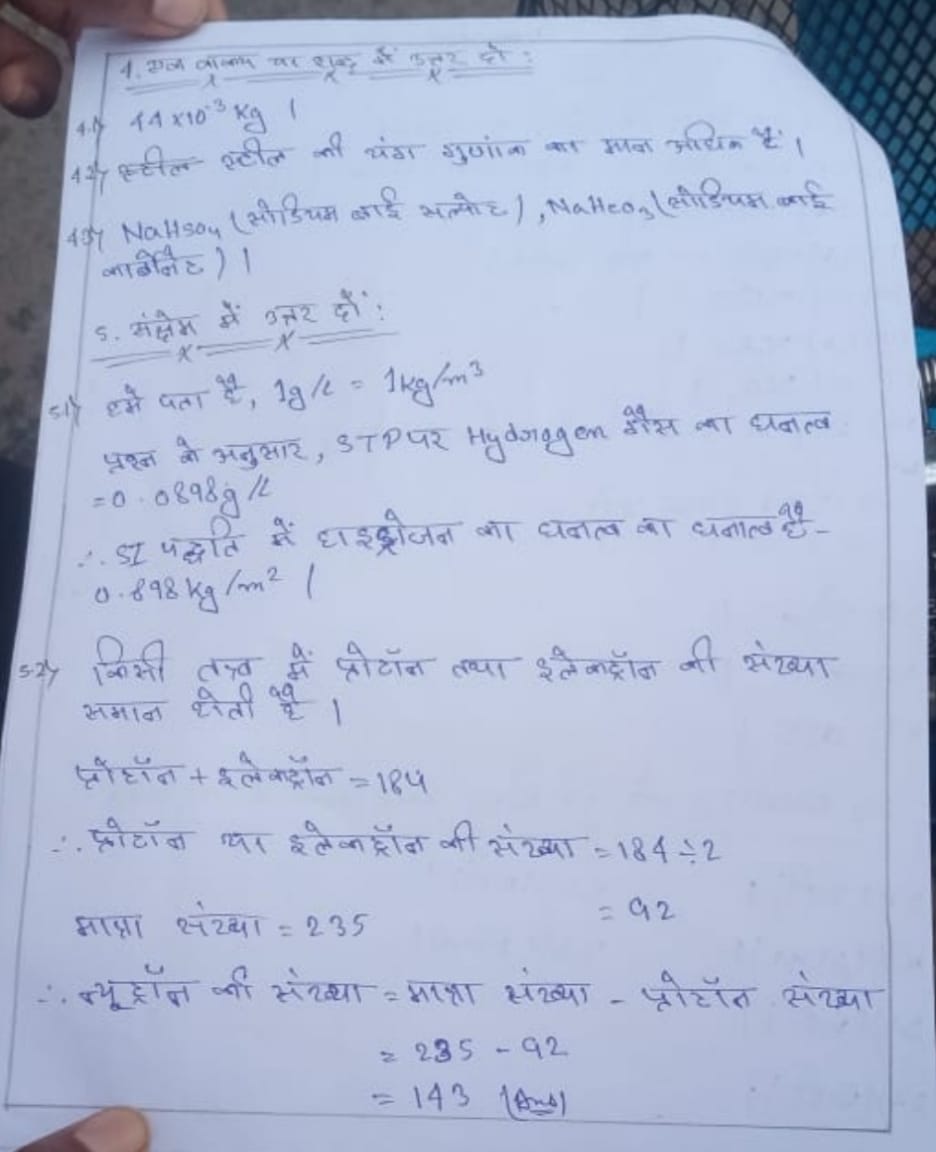 4. एक वाक्य या शब्द में उत्तर दो :
4.1) 44x10⁻³ Kg ।
4.2) स्टील स्टील की यंग गुणांक का मान अधिक है ।
4.3) NaHSO₄ (सोडियम बाई सल्फेट), NaHCO₃ (सोडियम बाई
कार्बोनेट) ।
5. संक्षेप में उत्तर दो :
5.1) हमें पता है, 1g/L = 1kg/m³
प्रश्न के अनुसार, STP पर Hydroggen गैस का घनत्व
= 0.0898g/L
∴ SI पद्धति में हाइड्रोजन का घनत्व का घनात्व है -
0.898 kg/m² ।
5.2) किसी तत्व में प्रोटॉन तथा इलेकट्रॉन की संख्या
समान होती है ।
प्रोटॉन + इलेकट्रॉन = 184
∴ प्रोटॉन या इलेकट्रॉन की संख्या = 184 ÷ 2
= 92
मात्रा संख्या = 235
∴ न्यूट्रॉन की संख्या = मात्रा संख्या - प्रोटॉन संख्या
= 235 - 92
= 143 (Ans)